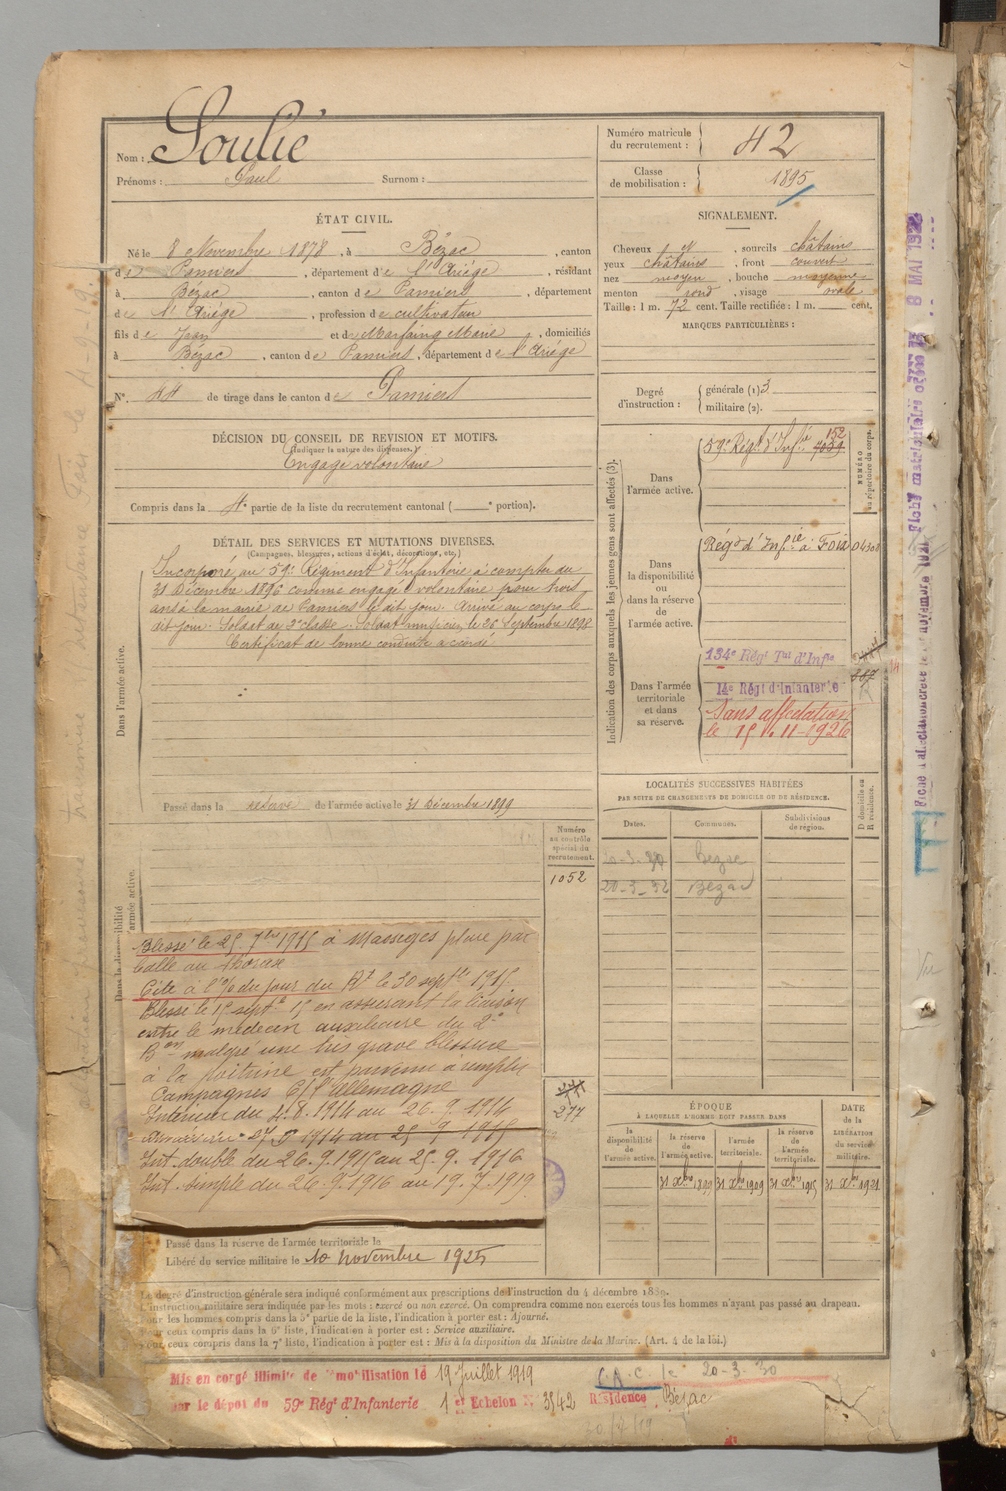 Nom : Soulié
Prénoms : Paul Surnom :
Numéro matricule du recrutement : 42
Classe de mobilisation : 1895
ÉTAT CIVIL.
Né le 8 Novembre 1878, à Bézac, canton
de Pamiers, département de l'Ariège, résidant
à Bézac, canton de Pamiers, département
de l'Ariège, profession de cultivateur
fils de Jean et de Marfaing Marie, domiciliés
à Bézac, canton de Pamiers, département de l'Ariège
N° 44 de tirage dans le canton de Pamiers
SIGNALEMENT.
Cheveux et, sourcils châtains
yeux châtains, front couvert
nez moyen, bouche moyenne
menton rond, visage ovale
Taille : 1 m. 72 cent. Taille rectifiée : 1 m. cent.
MARQUES PARTICULIÈRES :
Degré d'instruction : générale (1) 3
militaire (2).
DÉCISION DU CONSEIL DE REVISION ET MOTIFS.
(Indiquer la nature des dispenses.)
Engagé volontaire
Compris dans la 4e partie de la liste du recrutement cantonal ( e portion).
DÉTAIL DES SERVICES ET MUTATIONS DIVERSES.
(Campagnes, blessures, actions d'éclat, décorations, etc.)
Dans l'armée active.
Incorporé au 59e Régiment d'Infanterie à compter du
31 Décembre 1896 comme engagé volontaire pour trois
ans à la mairie de Pamiers le dit jour. Arrivé au corps le
dit jour. Soldat de 2e classe. Soldat musicien le 26 Septembre 1898
Certificat de bonne conduite accordé
Passé dans la réserve de l'armée active le 31 Décembre 1899
Indication des corps auxquels les jeunes gens sont affectés (3).
NUMÉRO au répertoire du corps.
Dans l'armée active.
59e Régt d'Infie 152
7059
Dans la disponibilité ou dans la réserve de l'armée active.
Régt d'Infie à Foix 04308
Dans l'armée territoriale et dans sa réserve.
134e Régt Tal d'Infie
14e Régt d'Infanterie
Sans affectation
le 15-11-1926
LOCALITÉS SUCCESSIVES HABITÉES
PAR SUITE DE CHANGEMENTS DE DOMICILE OU DE RÉSIDENCE.
Dates. Communes. Subdivisions de région. D domicile ou R résidence.
20-3-30 Bézac
20-3-32 Bézac
Numéro au contrôle spécial du recrutement.
1052
277
Blessé le 25 7bre 1915 à Massiges plaie par
balle au thorax
Cité à l'o/ du jour du Rt le 30 septbre 1915.
Blessé le 15 septe 15 en assurant la liaison
entre le médecin auxiliaire du 2e
Bon malgré une très grave blessure
à la poitrine est parvenu à remplir
Campagnes C/ l'Allemagne
Intérieur du 4.8.1914 au 26.9.1914
Int. double du 26.9.1915 au 25.9.1916
Int. simple du 26.9.1916 au 19.7.1919
Passé dans la réserve de l'armée territoriale le
Libéré du service militaire le 10 novembre 1925
ÉPOQUE
À LAQUELLE L'HOMME DOIT PASSER DANS
la disponibilité de l'armée active. la réserve de l'armée active. l'armée territoriale. la réserve de l'armée territoriale.
DATE de la LIBÉRATION du service militaire.
31 Xbre 1899 31 Xbre 1909 31 Xbre 1915 31 Xbre 1921
Le degré d'instruction générale sera indiqué conformément aux prescriptions de l'instruction du 4 décembre 1889.
L'instruction militaire sera indiquée par les mots : exercé ou non exercé. On comprendra comme non exercés tous les hommes n'ayant pas passé au drapeau.
Pour les hommes compris dans la 5e partie de la liste, l'indication à porter est : Ajourné.
Pour ceux compris dans la 6e liste, l'indication à porter est : Service auxiliaire.
Pour ceux compris dans la 7e liste, l'indication à porter est : Mis à la disposition du Ministre de la Marine. (Art. 4 de la loi.)
Mis en congé illimité de démobilisation le 19 Juillet 1919 C.A.C le 20-3-30
par le dépôt du 59e Régt d'Infanterie 1er Echelon N° 3542 Résidence, Bézac
20/7/19